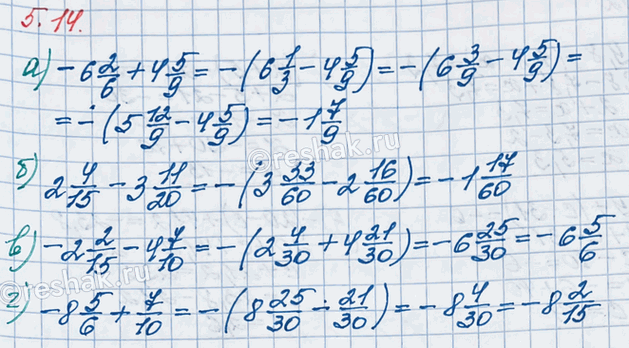 5.14.
а) -6 2/6 + 4 5/9 = -(6 1/3 - 4 5/9) = -(6 3/9 - 4 5/9) =
= -(5 12/9 - 4 5/9) = -1 7/9
б) 2 4/15 - 3 11/20 = -(3 33/60 - 2 16/60) = -1 17/60
в) -2 2/15 - 4 7/10 = -(2 4/30 + 4 21/30) = -6 25/30 = -6 5/6
г) -8 5/6 + 7/10 = -(8 25/30 - 21/30) = -8 4/30 = -8 2/15
©reshak.ru